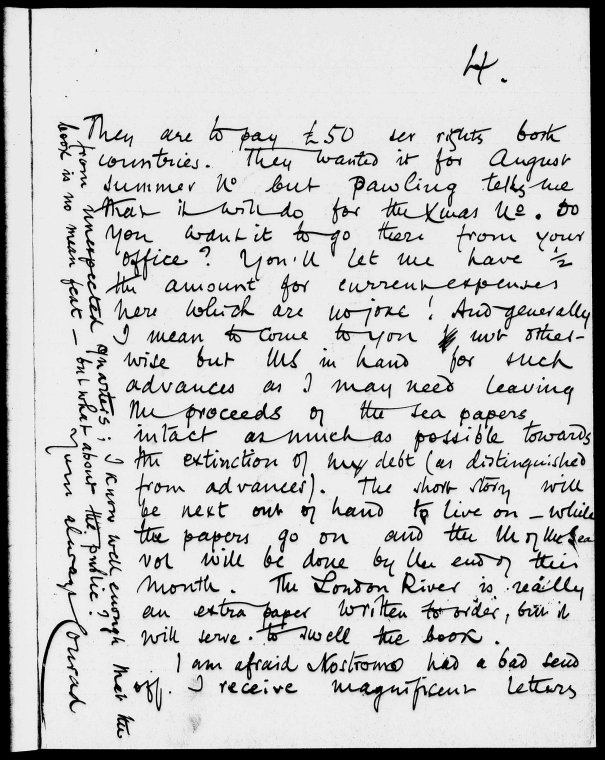 4.
They are to pay £50 ser rights both
countries. They wanted it for August
Summer Nº but Pawling tells me
that it will do for the Xmas Nº. Do
You want it to go there from your
office? You'll let me have ½
the amount for current expenses
here which are no joke! And generally
I mean to come to you not other-
wise but MS in hand for such
advances as I may need leaving
the proceeds of the sea papers
intact as much as possible towards
the extinction of my debt (as distinguished
from advances). The short story will
be next out of hand to live on – while
the papers go on and the M of the Sea
vol will be done by the end of this
month. The London River is really
an extra paper written to order, but it
will serve to swell the book.
I am afraid Nostromo had a bad send
off. I receive magnificent letters
from unexpected quarters; I know well enough that the
book is no mean feat – but what about the public?
Yours always Conrad